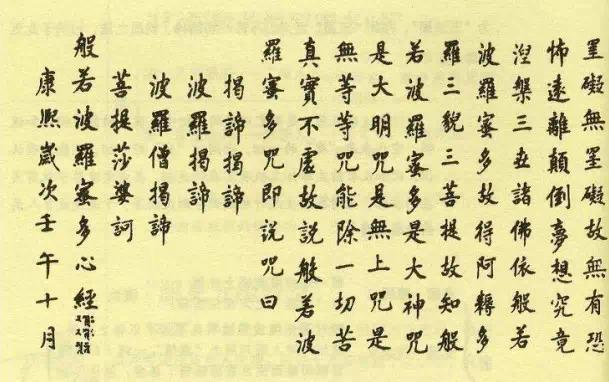 罣礙無罣礙故無有恐
怖遠離顛倒夢想究竟
涅槃三世諸佛依般若
波羅蜜多故得阿耨多
羅三貌三菩提故知般
若波羅蜜多是大神咒
是大明咒是無上咒是
無等等咒能除一切苦
真實不虛故說般若波
羅蜜多咒即說咒曰
揭諦揭諦
波羅揭諦
波羅僧揭諦
菩提莎婆訶
般若波羅蜜多心經
康熙歲次壬午十月